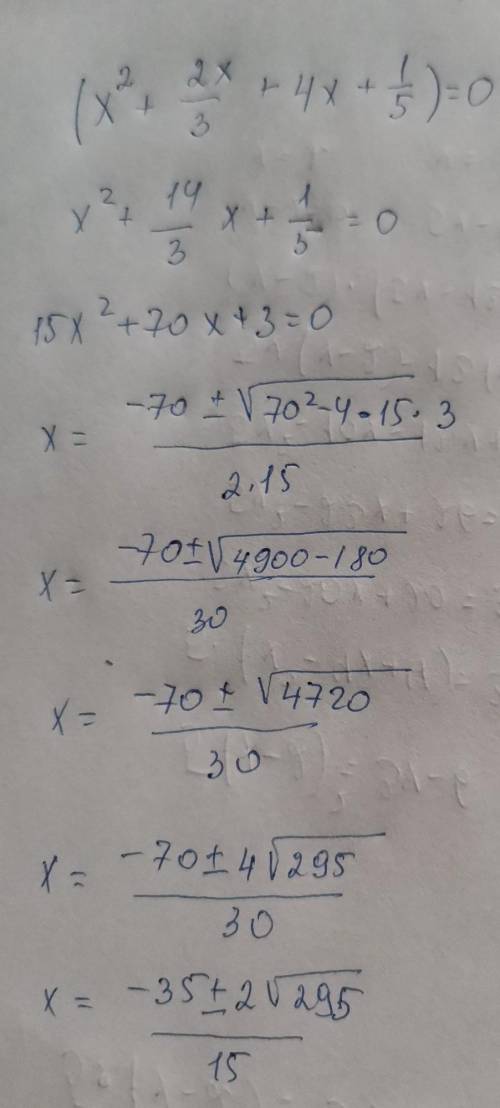 (x² + 2x/3 + 4x + 1/5) = 0
x² + 14/3 x + 1/5 = 0
15x² + 70x + 3 = 0
x = (-70 ± √(70² - 4·15·3))/(2·15)
x = (-70 ± √(4900 - 180))/30
x = (-70 ± √4720)/30
x = (-70 ± 4√295)/30
x = (-35 ± 2√295)/15